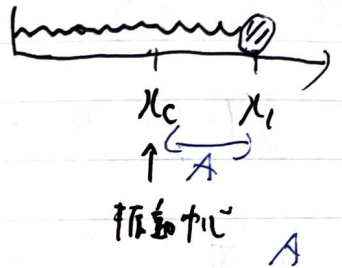 x_c x_1
A
↑
振動中心
A